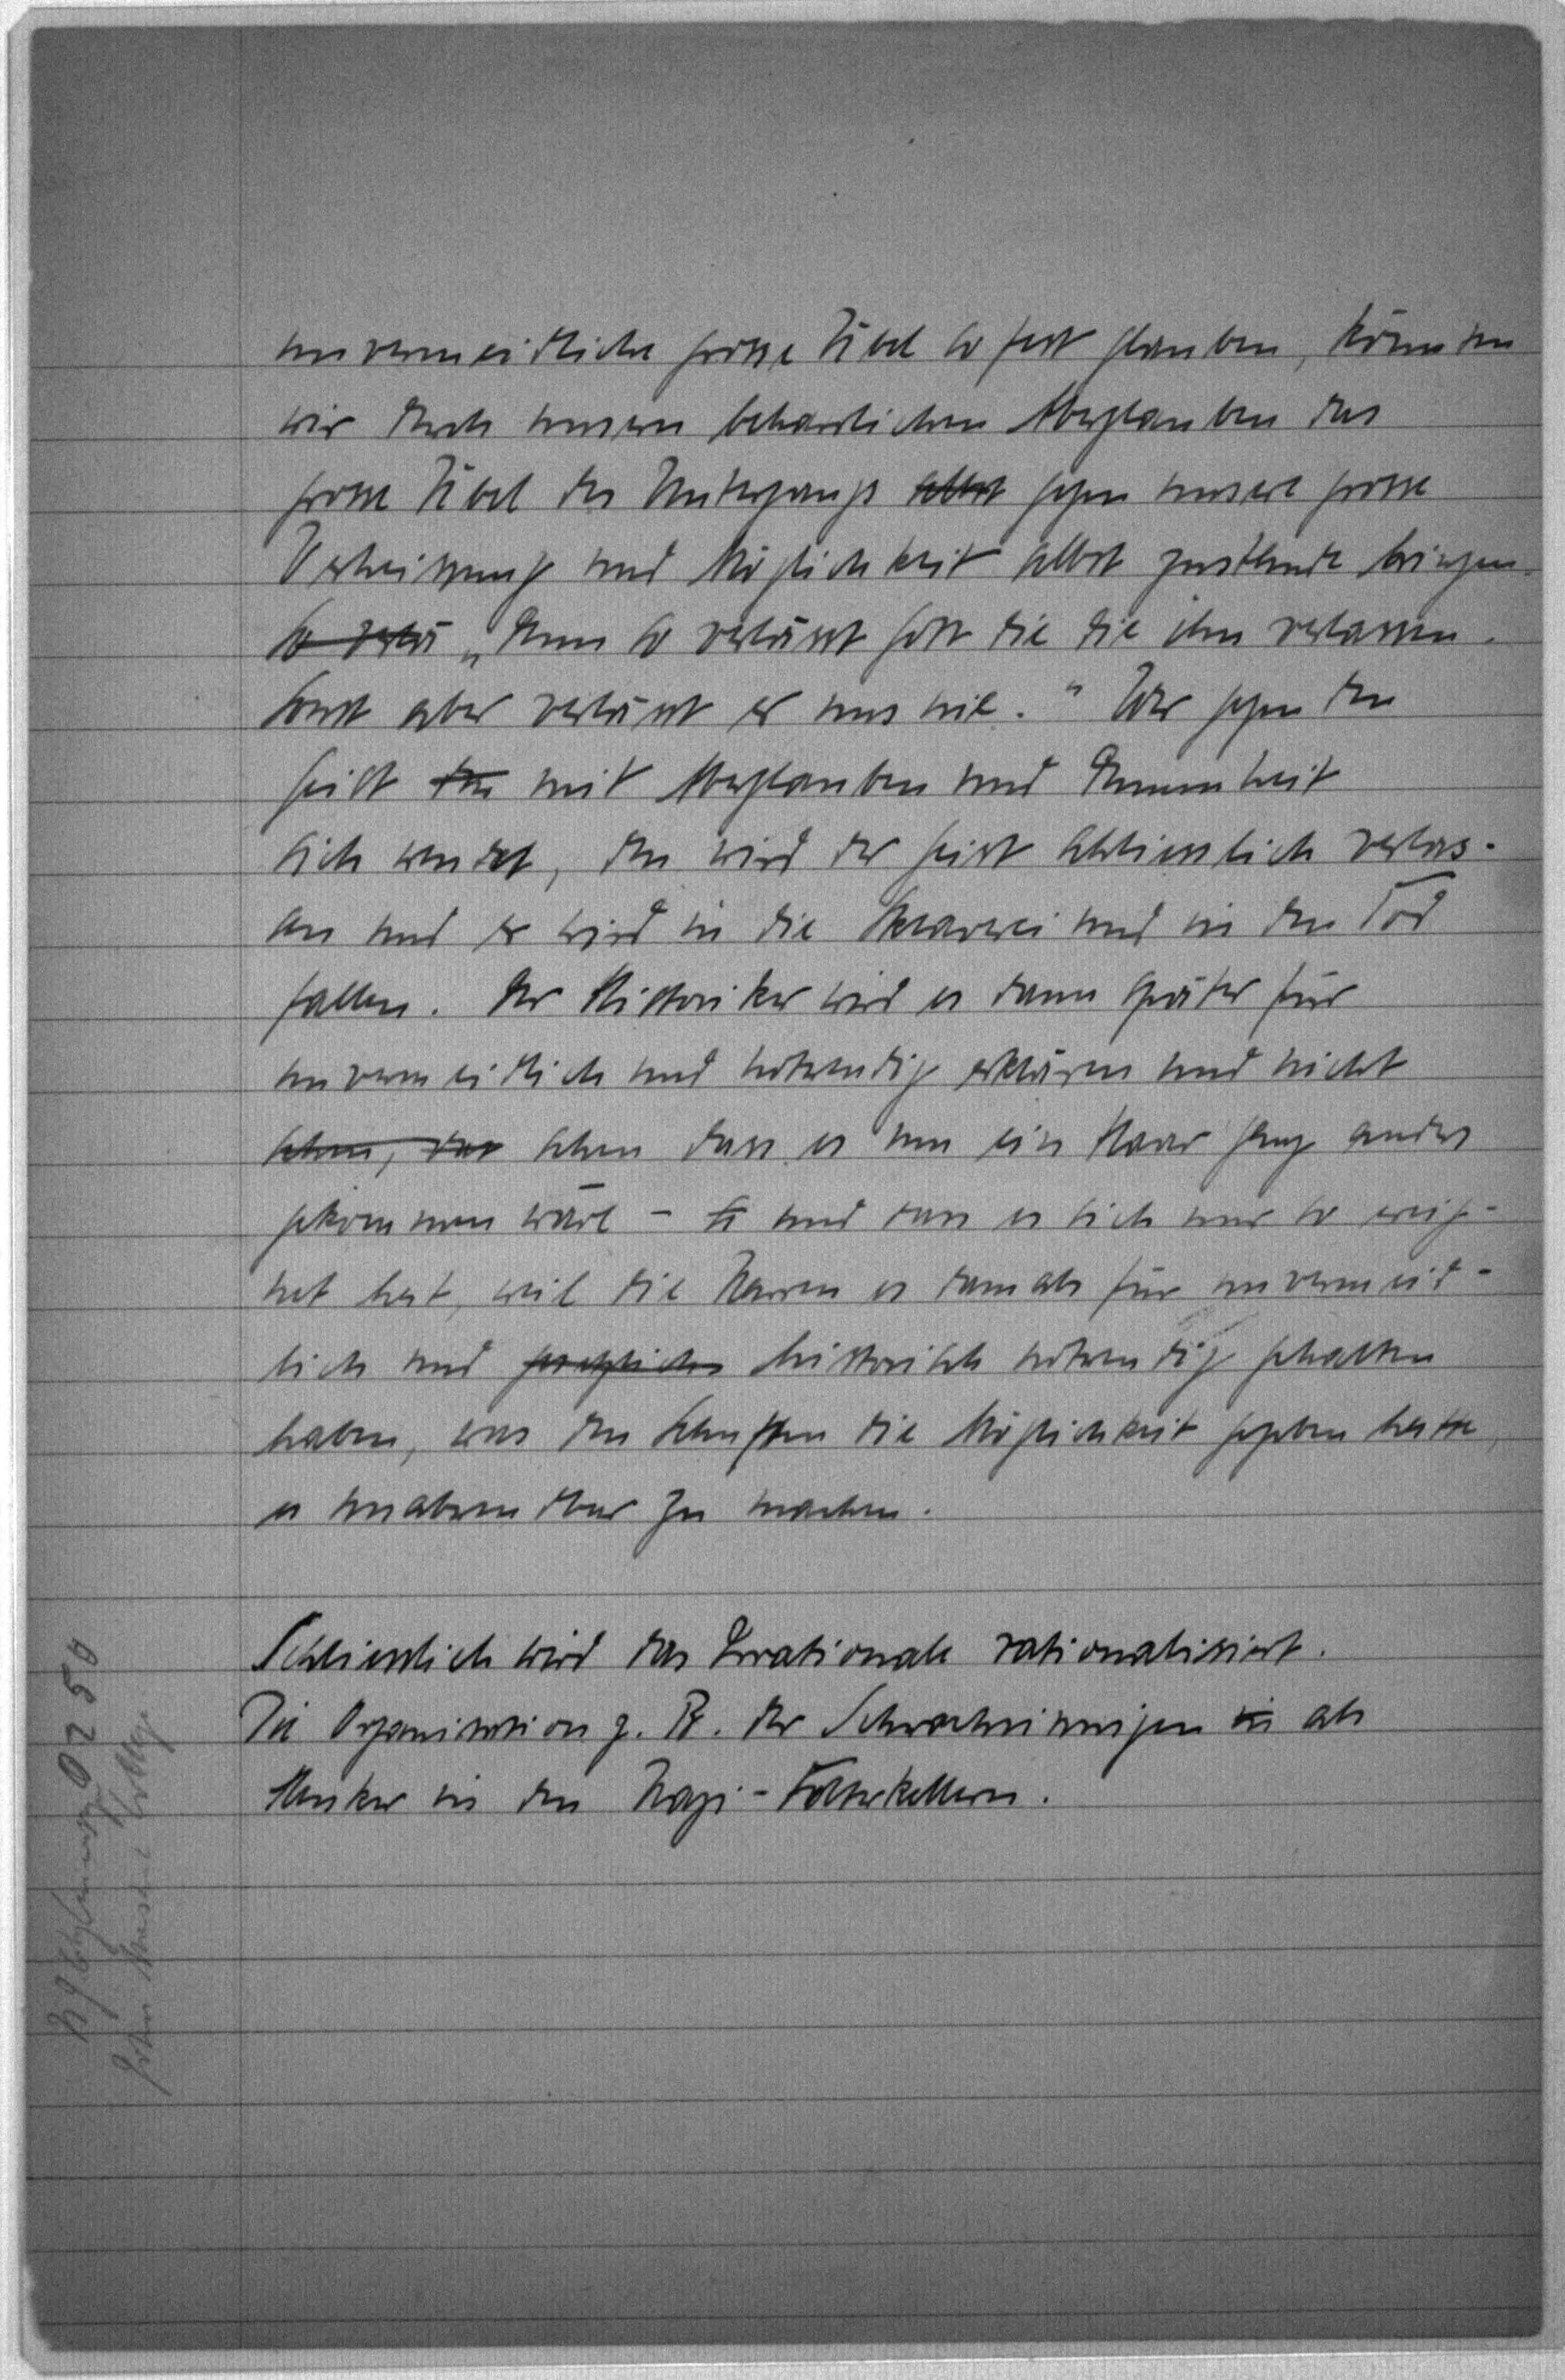 unvermeidliche grosse Übel so fest glauben, könnten
wir durch unseren beharrlichen Aberglauben das
grosse Übel des Untergangs selbst gegen unsere grosse
Verheissung und Möglichkeit selbst zustande bringen.
So verlä „Denn so verlässt Gott die die ihn verlassen.
Sonst aber verlässt er uns nie." Wer gegen den
Geist mit Aberglauben und Dummheit
sich wendet, den wird der Geist schliesslich verlas-
sen und er wird in die Sklaverei und in den Tod
fallen. Der Historiker wird es dann später für
unvermeidlich und notwendig erklären und nicht
sehen, das sehen dass es um ein Haar ganz anders
gekommen wäre - und dass es sich nur so ereig-
net hat, weil die Narren es damals für unvermeid-
lich und historisch notwendig gehalten
haben, was den Schuften die Möglichkeit gegeben hatte,
es unabwendbar zu machen.
Schliesslich wird das Irrationale rationalisiert.
Die Organisation z. B. der Schwachsinnigen als
Henker in den Nazi-Folterkellern.
0250
College